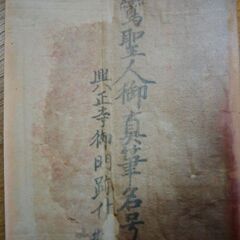 鸞聖人御真筆名号
興正寺御門跡什